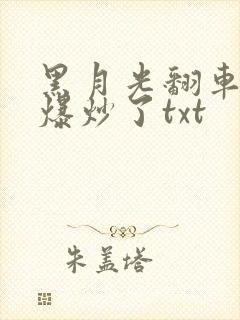 黑月光翻车
爆炒了txt
朱盖塔